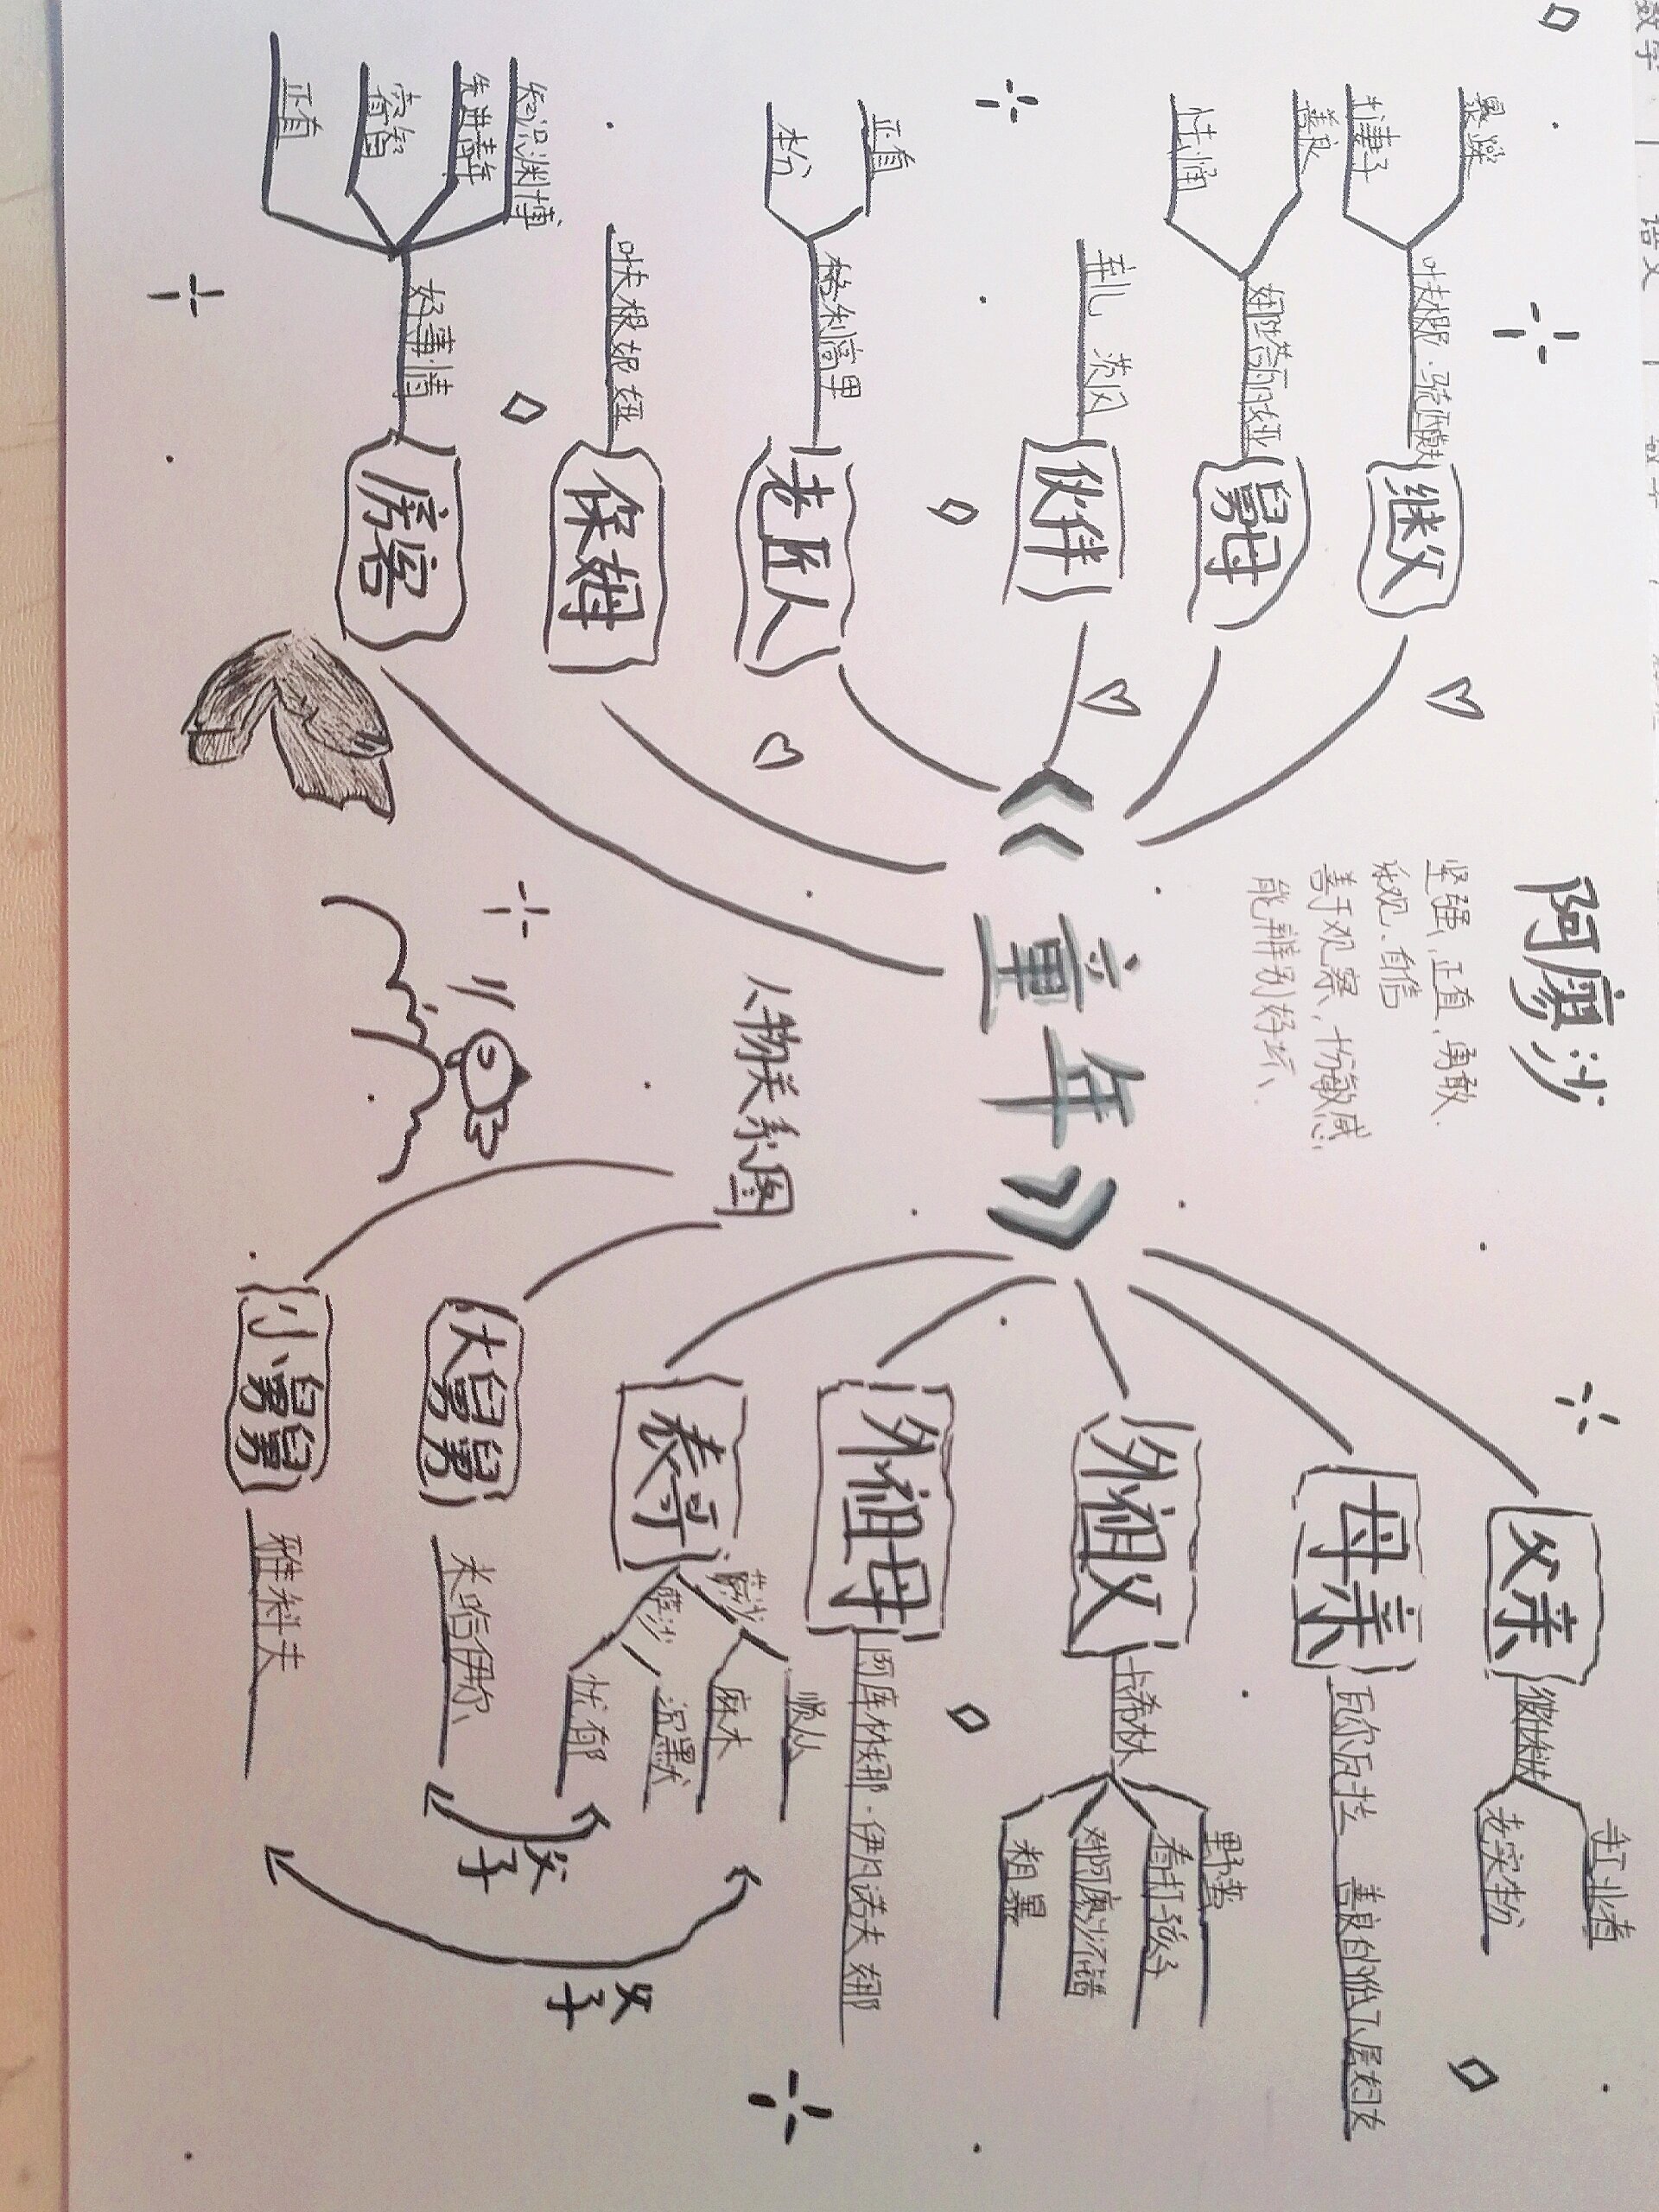 阿廖沙
坚强,正直,勇敢.
乐观、自信
善于观察,十分敏感
能辨别好坏、
《童年》
人物关系图
继父
叶夫根尼·马克西莫夫
暴燥
打妻子
舅母
娜塔丽娅
善良
怯懦
伙伴
茨冈
老匠人
格利高里
正直
本分
保姆
叶夫根妮娅
房客
好事情
知识渊博
先进青年
正直
父亲
老实本份
母亲
瓦尔瓦拉 善良的俄下层妇女
外祖父
卡希林
野蛮
毒打孩子
对阿廖沙不错
粗暴
外祖母
阿库林娜·伊凡诺夫娜
表哥
萨沙
顺从
麻木
萨沙
沉默
忧郁
大舅舅
米哈伊尔
父子
小舅舅
雅科夫
父子
数学
语文